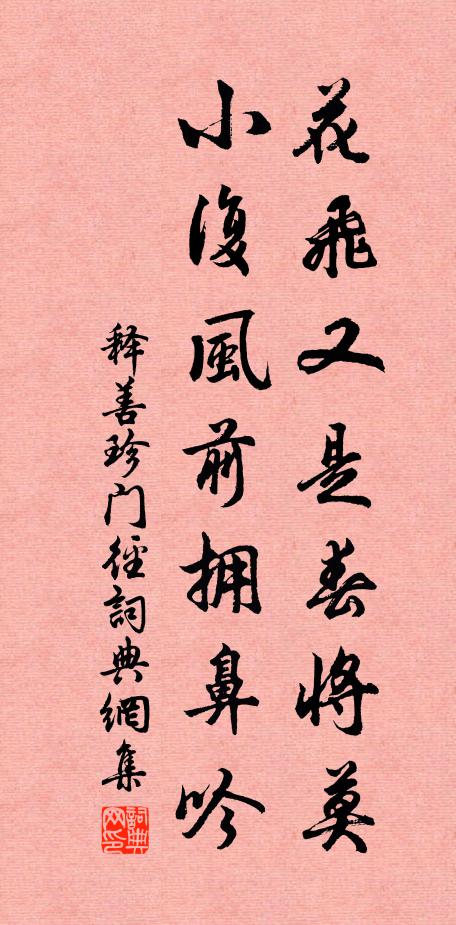 花飛又是春將莫
小復風前拥鼻吟
释善珍门徑詞典網集
詞典网印